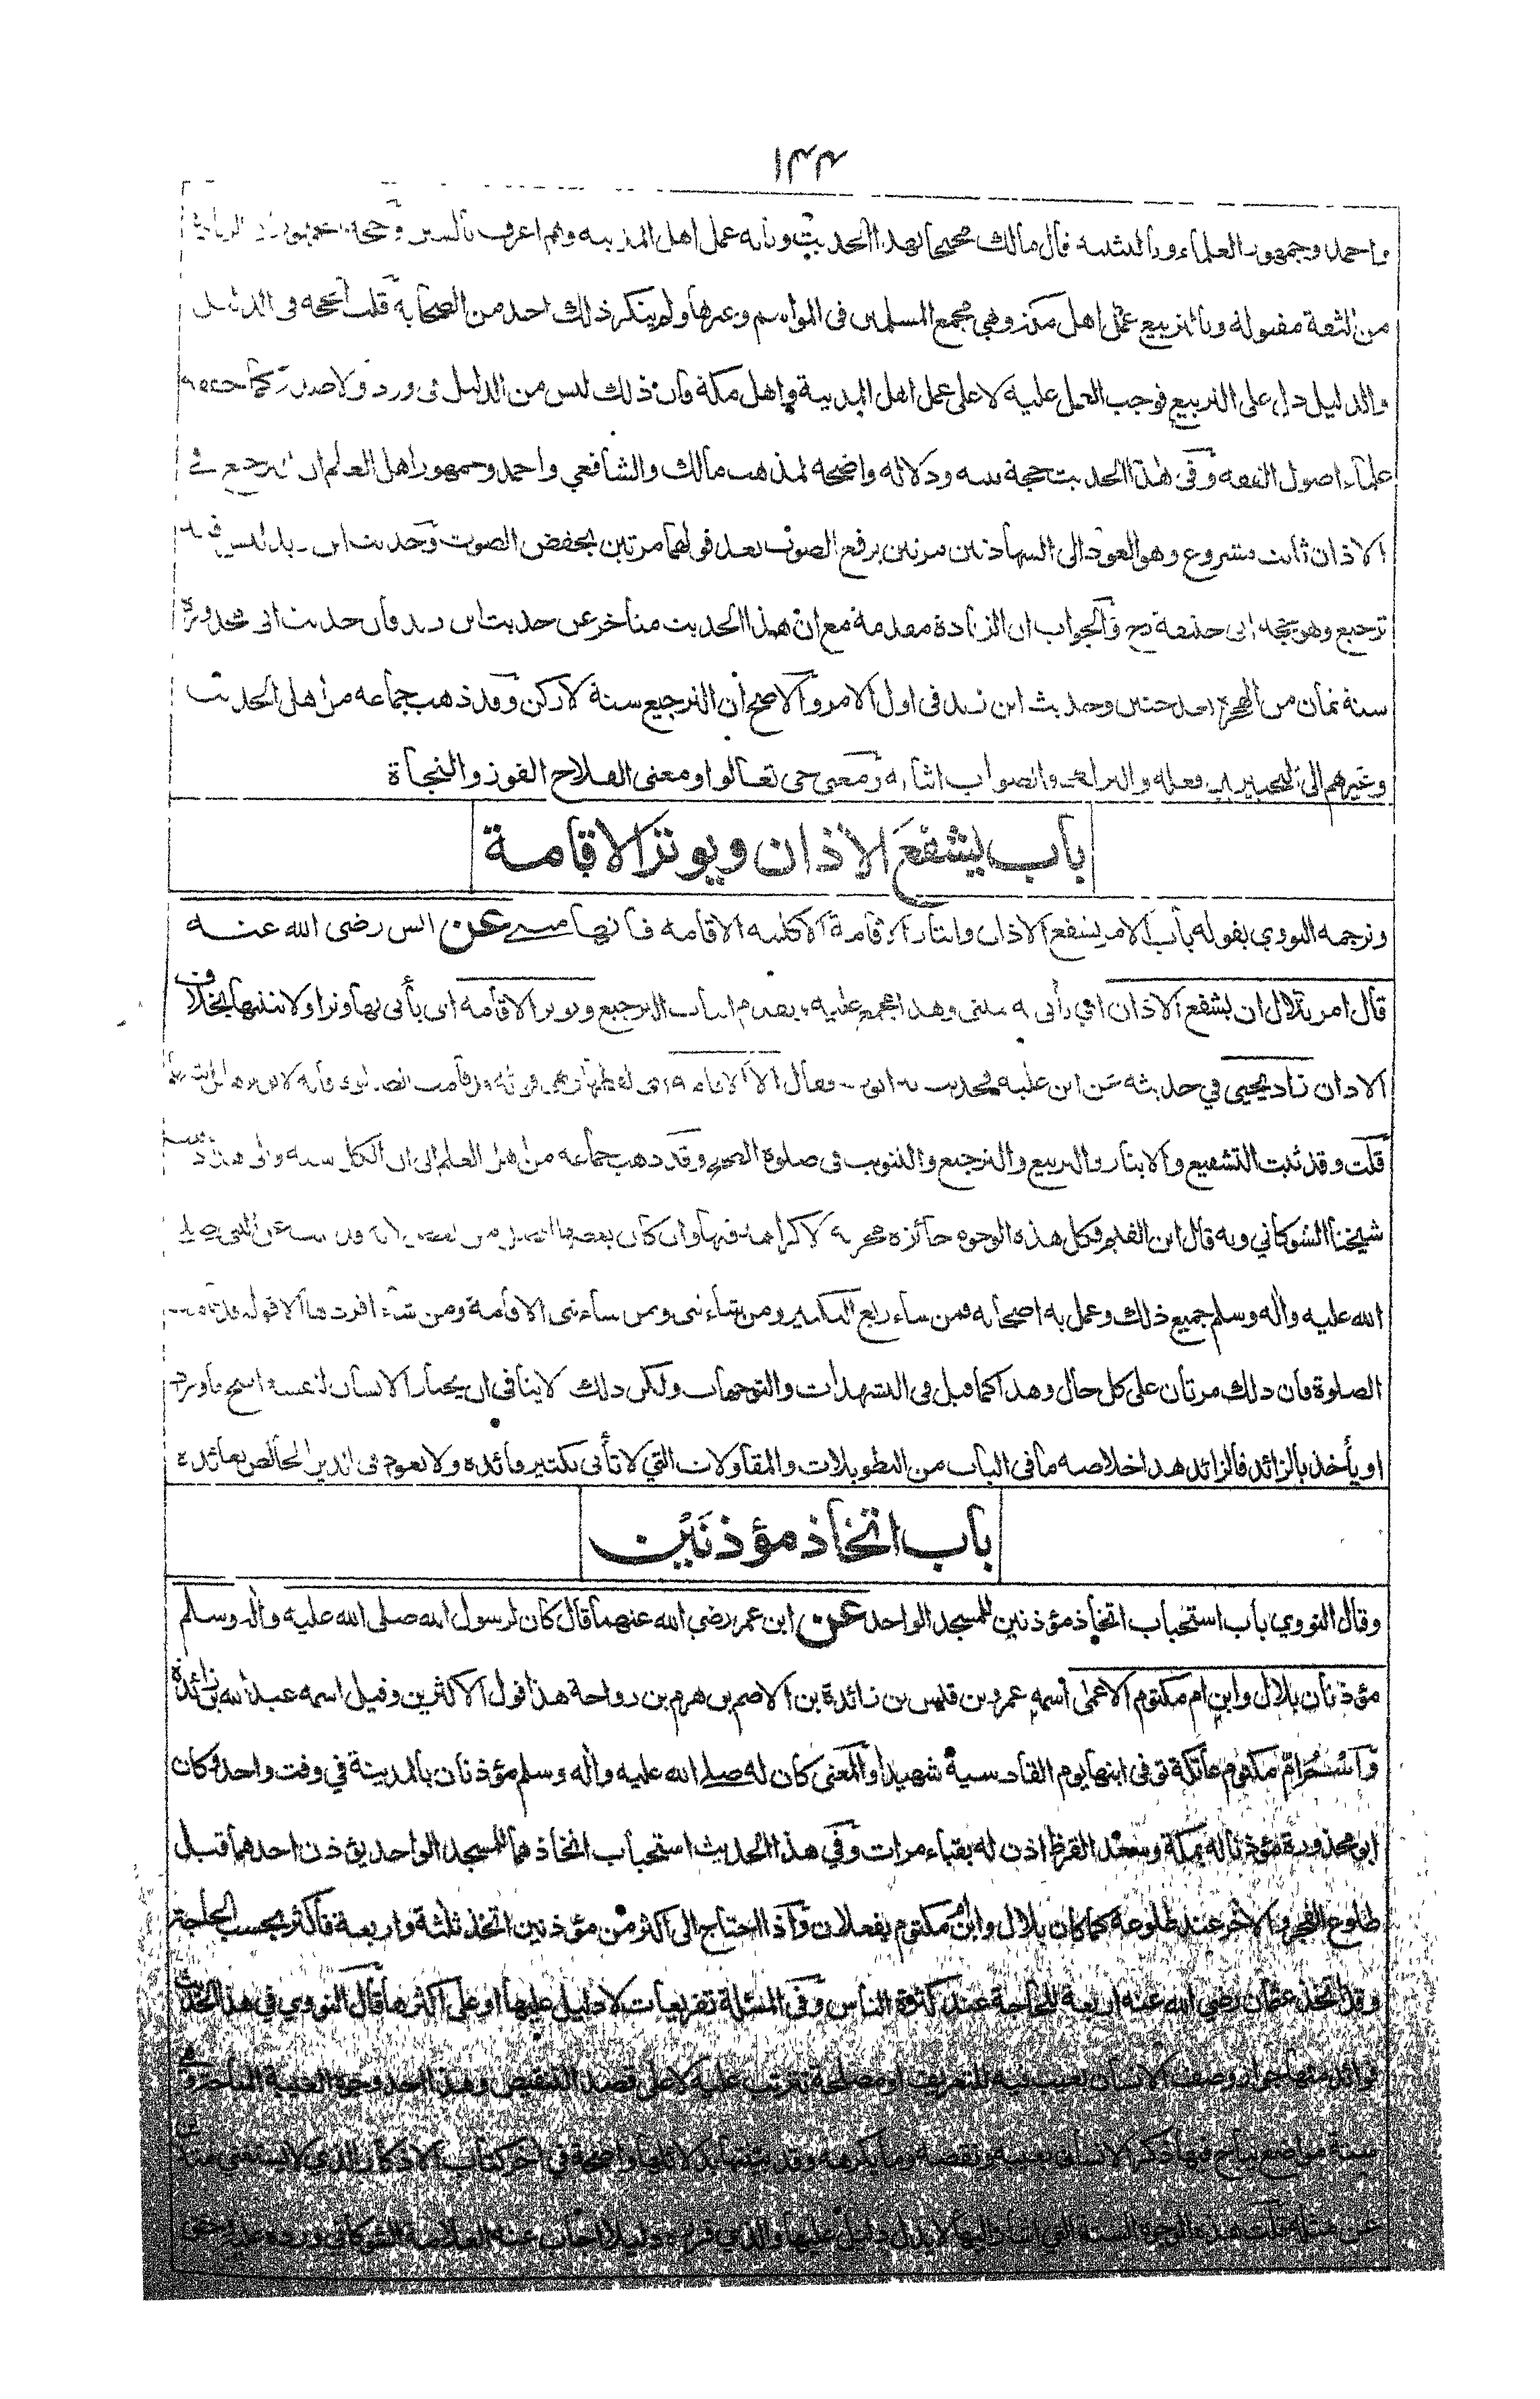 ١٣٣
واحمد وجمهور العلماء وبالتثنية قال مالك محتجا بهذا الحديث وبانه عمل اهل المدينة وهم اعرف بالسنن وحجة الجمهور ان الزيادة
من الثقة مقبولة وبالتربيع عمل اهل مكة وهي مجمع المسلمين فى المواسم وغيرها ولم ينكر ذلك احد من الصحابة قلت الحجة فى الدليل
والدليل دل على التربيع فوجب العمل عليه لا على عمل اهل المدينة واهل مكة فان ذلك ليس من الدليل فى ورد ولا صدر كما حققه
علماء اصول الفقه وفى هذا الحديث حجة بينه ودلالة واضحه لمذهب مالك والشافعي واحمد وجمهور اهل العلم ان الترجيع في
الاذان ثابت مشروع وهو العود الى الشهادتين مرتين برفع الصوت بعد قولهما مرتين بخفض الصوت وحديث ابن زيد ليس فيه
ترجيع وهو حجه ابى حنيفة رح والجواب ان الزيادة مقدمة مع ان هذا الحديث متأخر عن حديث ابن زيد فان حديث ابى محذورة
سنة ثمان من الهجرة بعد حنين وحديث ابن زيد فى اول الامر والاصح ان الترجيع سنة لا ركن وقد ذهب جماعه من اهل الحديث
وغيرهم الى التخيير بين فعله والصواب اثباته ومعنى حى تعالوا ومعنى الفلاح الفوز والنجاة
باب يشفع الاذان ويوتر الاقامة
وترجمه النووي بقوله باب الامر بشفع الاذان وايتار الاقامة الا كلمة الاقامة فانها مثنى عن انس رضى الله عنه
قال امر بلال ان يشفع الاذان اى يأتى به مثنى وهذا مجمع عليه ويوتر الاقامه اى يأتى بها وترا ولا يثنيها بخلاف
الاذان زاد يحيى في حديثه عن ابن علية فحدثت به ايوب فقال الا الاقامه
قلت وقد ثبت التشفيع والايتار والتربيع والترجيع والتثويب فى صلوة الصبح وقد ذهب جماعه من اهل العلم الى ان الكل سنه والى هذا ذهب
شيخنا الشوكاني وبه قال ابن القيم فكل هذه الوجوه جائزة مجزية لا كراهة فيها وان كان بعضها افضل من بعض عن النبى صلى
الله عليه واله وسلم جميع ذلك وعمل به اصحابه فمن شاء ربع التكبير ومن شاء ثنى ومن شاء ثنى الاقامة ومن شاء افردها الا قوله قد قامت
الصلوة فان ذلك مرتان على كل حال وهذا كما قيل فى التشهدات والتوجهات ولكن ذلك لا ينافى ان يختار الانسان لنفسه اصح ما ورد
او يأخذ بالزائد فالزائد هذا خلاصه ما فى الباب من التطويلات والمقاولات التي لا تأتى بكثير فائدة ولا تعود فى الدين الخالص بعائدة
باب اتخاذ مؤذنين
وقال النووي باب استحباب اتخاذ مؤذنين للمسجد الواحد عن ابن عمر رضي الله عنهما قال كان لرسول الله صلى الله عليه واله وسلم
مؤذنان بلال وابن ام مكتوم الاعمى اسمه عمرو بن قيس بن زائدة بن الاصم بن هرم بن رواحة هذا قول الاكثرين وقيل اسمه عبد الله بن زائدة
واسم ام مكتوم عاتكة توفى ابنها يوم القادسية شهيدا والمعنى كان له صلى الله عليه واله وسلم مؤذنان بالمدينة في وقت واحد وكان
ابو محذورة مؤذنا له بمكة وسعد القرظ اذن له بقباء مرات وفي هذا الحديث استحباب اتخاذهما للمسجد الواحد يؤذن احدهما قبل
طلوع الفجر والاخر عند طلوعه كما كان بلال وابن ام مكتوم يفعلان واذا احتاج الى اكثر من مؤذنين اتخذ ثلثة واربعة فاكثر بحسب الحاجة
وقد اتخذ عثمان رضي الله عنه اربعة للحاجة عند كثرة الناس وفى المسئلة تفريعات لا دليل عليها او على اكثرها قال النووي في هذا الحديث
فوائد منها جواز وصف الانسان بعيب فيه للتعريف او مصلحة تترتب عليه لا على قصد التنقيص وهذا احد وجوه الغيبة المباحة وهى
ستة مواضع يباح فيها ذكر الانسان بعيبه ونقصه وما يكرهه وقد بينتها بدلائلها واضحة في اخر كتاب الاذكار الذي لا يستغنى متدين
عن مثله قلت هذه الوجوه الستة التي اشار اليها لا يدل دليل عليها والذي قرره دليلا اجاب عنه العلامة الشوكاني ورده عليه